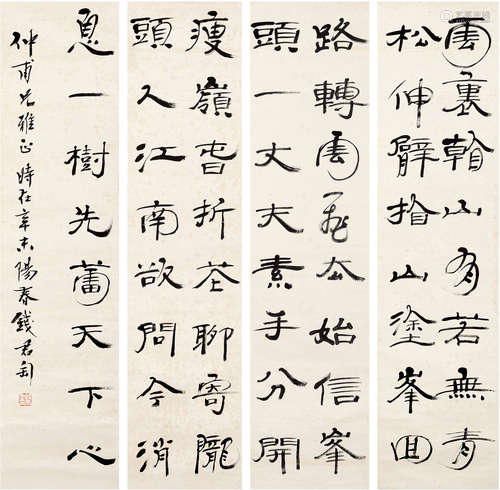 雲裏山有若無青
松伸臂指山塗峯回
路轉雲飛去始信峯
頭一丈夫素手分開
瘦嶺香折花聊寄隴
頭人江南欲問今消
息一樹先蕾天下心
仲甫雅正時在辛未陽春錢君匋